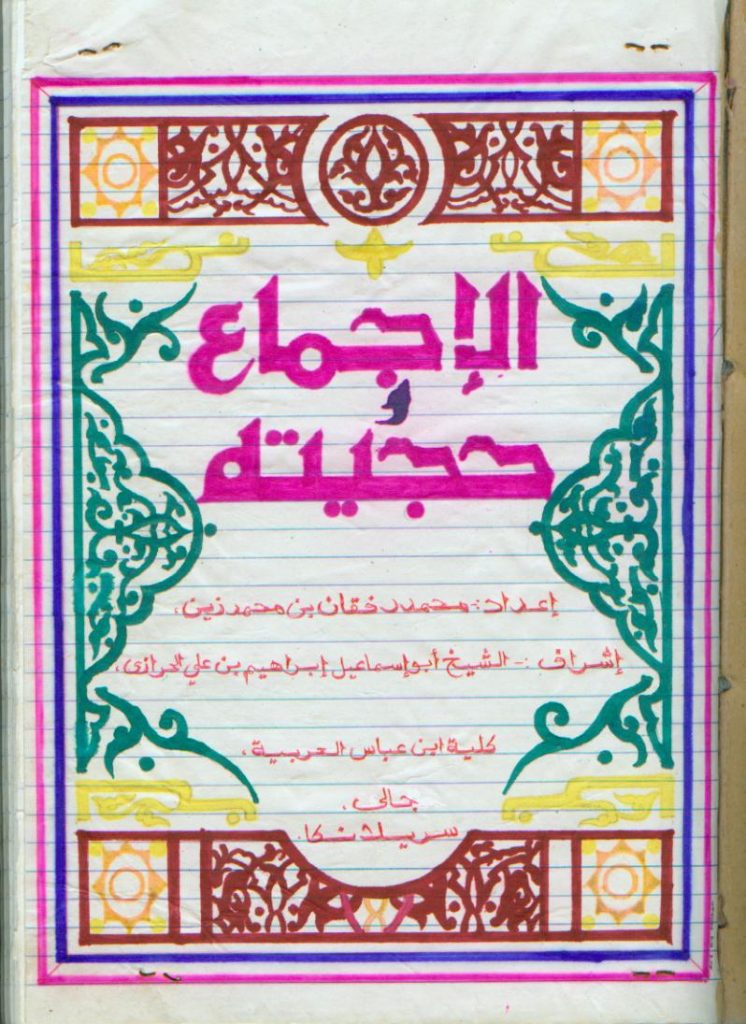 الإجماع
و
حجيته
إعداد:- محمد رخقان بن محمد زين،
إشراف :- الشيخ أبو إسماعيل إبراهيم بن علي الحرازى،
كلية ابن عباس العربية،
جالى،
سريلانكا.